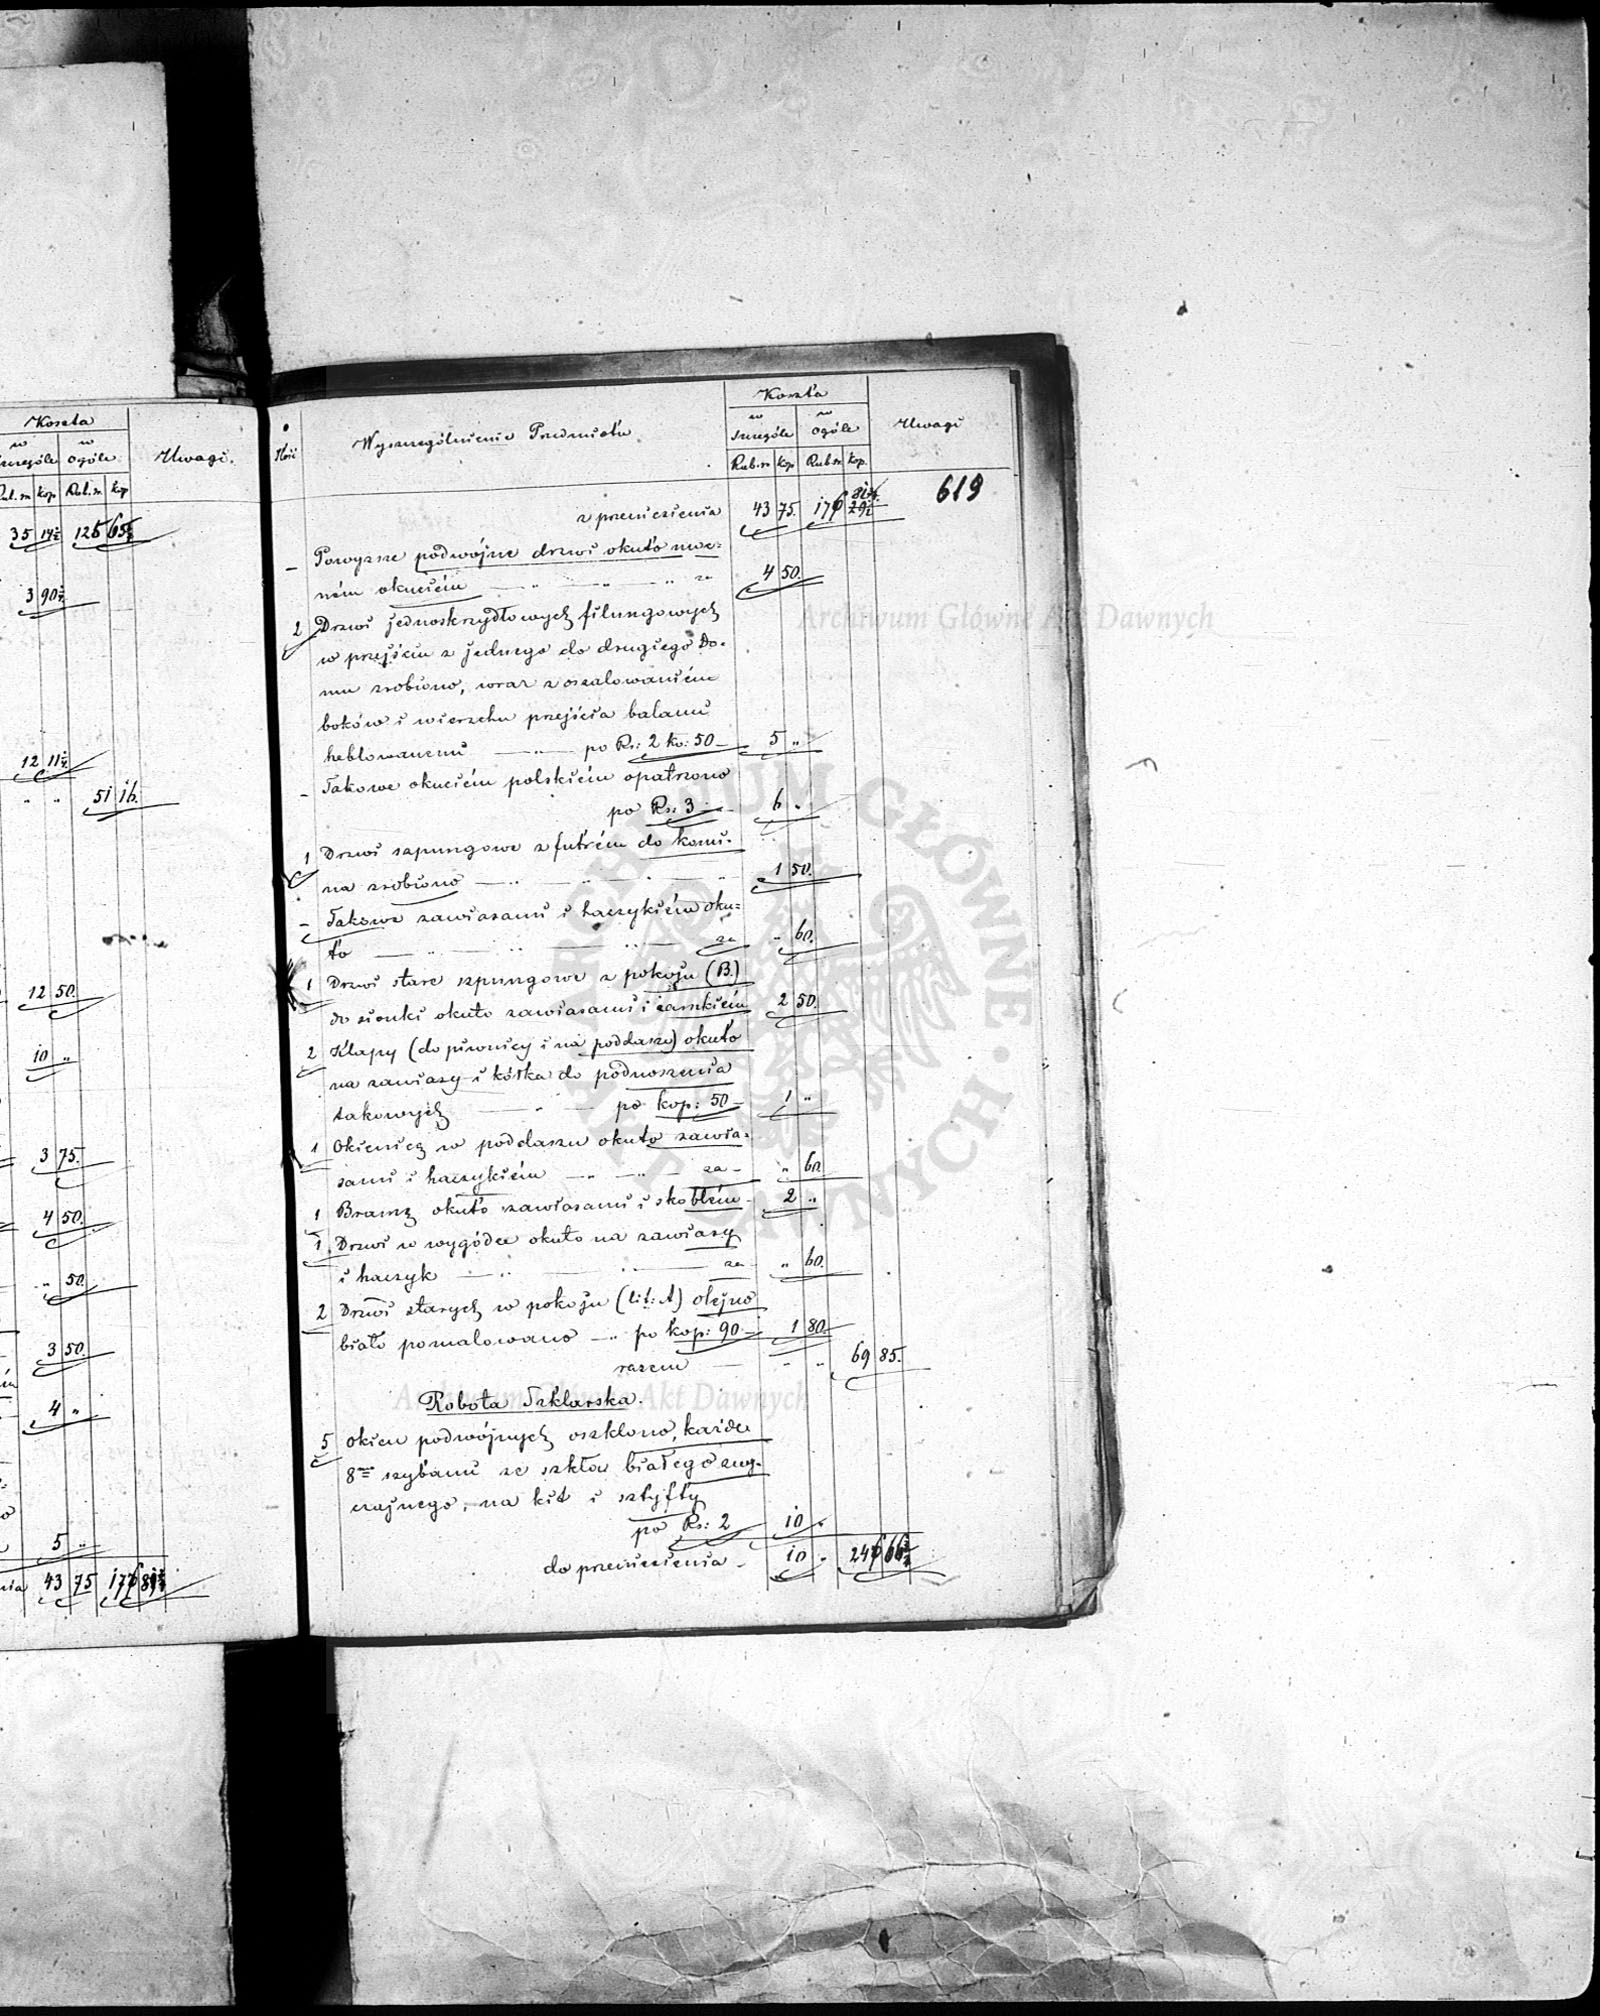 Koszta
w szczególe
w ogóle
Uwagi.
Rub. sr. kop Rub. sr. kop
35 14½ 125 65½
3 90½
12 11½
" " 51 16.
12 50.
10 "
3 75.
4 50.
" 50.
3 50.
4 "
5 "
43 75 176 81¾
Ilość
Wyszczególnienie Przedmiotu.
Koszta
w szczególe
w ogóle
Uwagi
Rub. sr kop Rub. sr. kop.
619
z przeniesienia 43 75. 176 81¾
– Powyższe podwójne drzwi okuto moc-
ném okuciém — " — " — " za 4 50.
2 Drzwi jednoskrzydłowych filungowych
w przejściu z jednego do drugiego Do-
mu zrobiono, wraz z oszalowaniém
boków i wierzchu przejścia balami
heblowanemi — " — po Rs: 2 ko: 50 – 5 "
– Takowe okuciém polskiém opatrzono
po Rs: 3 – 6 "
1 Drzwi szpungowe z futrém do komi-
na zrobiono — " — " — " — " 1 50.
– Takowe zawiasami i haczykiém oku-
to — " — " — " — za " 60.
1 Drzwi stare szpungowe z pokoju (B.)
do sionki okuto zawiasami i zamkiém 2 50.
2 Klapy (do piwnicy i na poddasze) okuto
na zawiasy i kółka do podnoszenia
takowych — " — po kop: 50 – 1 "
1 Okienicę w poddaszu okuto zawia-
sami i haczykiém — " — " — za – " 60
1 Bramę okuto zawiasami i skoblém – 2 "
1 Drzwi w wygódce okuto na zawiasy
i haczyk — " — " — za " 60.
2 Drzwi starych w pokoju (lit: A) olejno
biało pomalowano – " po kop: 90 – 1 80
razem — " " 69 85.
Robota Szklarska.
5 Okien podwójnych oszklono, każde
8ma szybami ze szkła białego zwy-
czajnego, na kit i sztyfty
po Rs: 2 10 "
do przeniesienia – 10 " 246 66¾
Archiwum Główne Akt Dawnych
Archiwum Główne Akt Dawnych
ARCHIWUM GŁÓWNE · AKT DAWNYCH ·